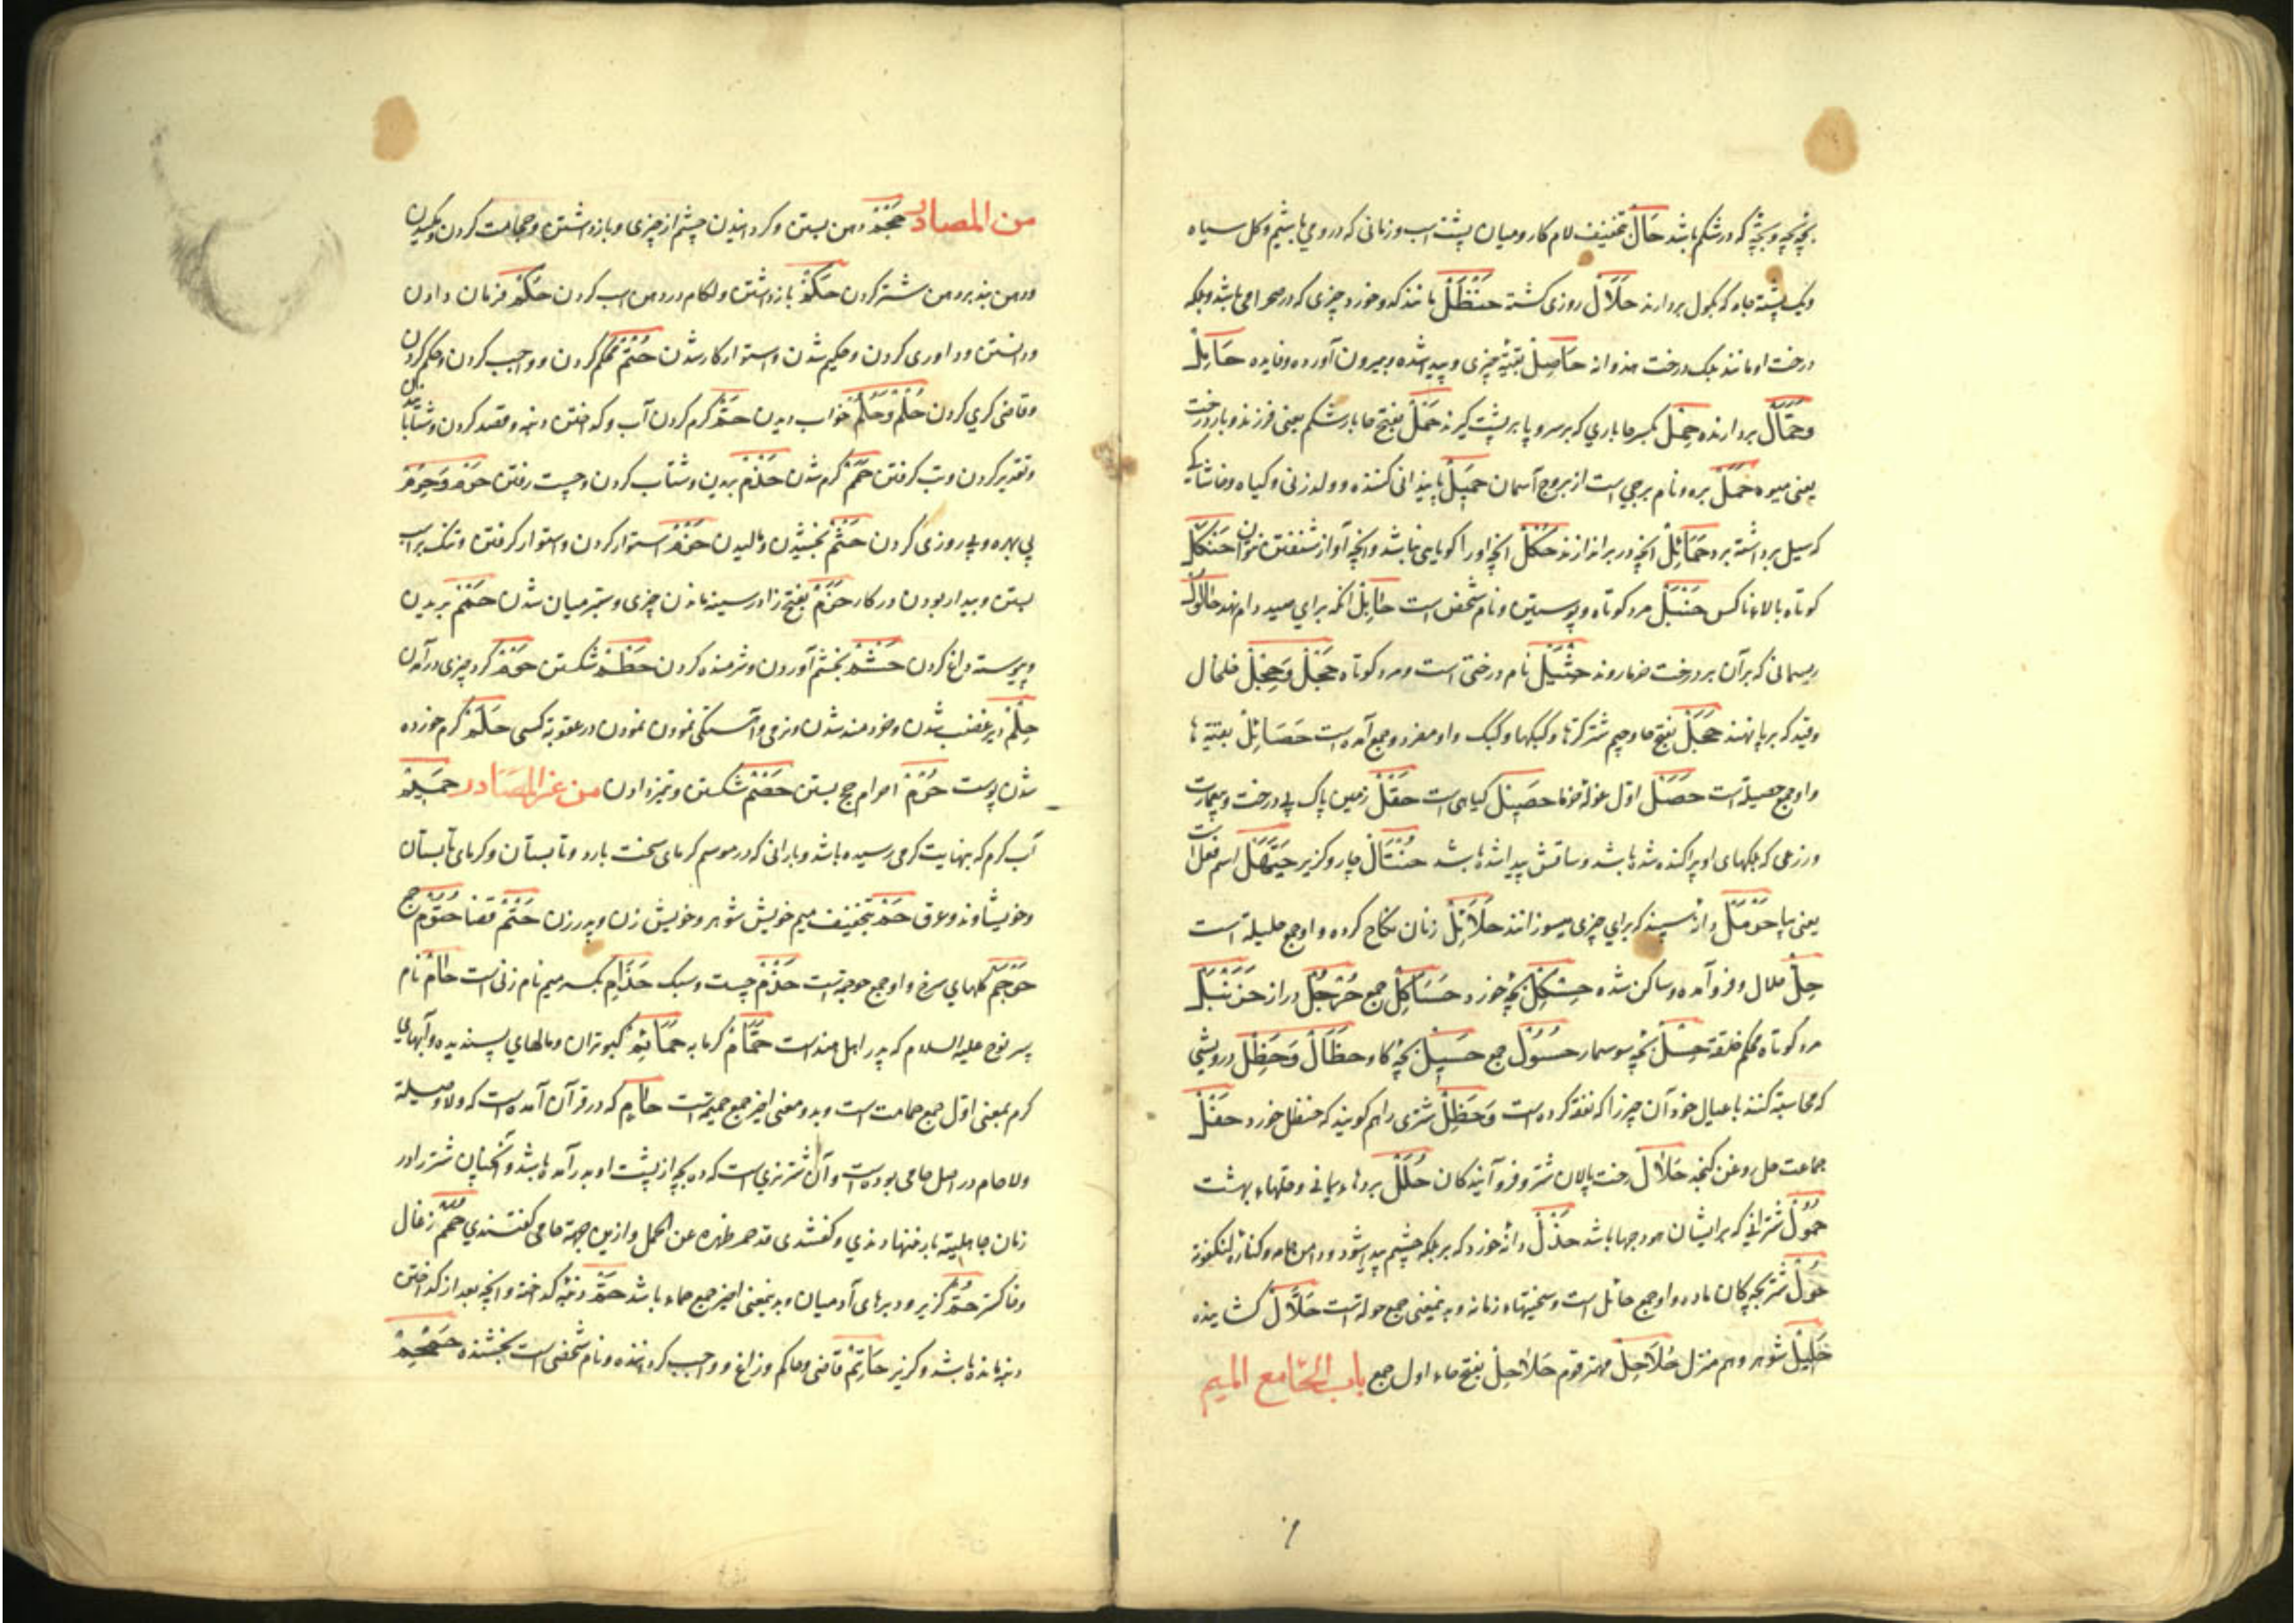 بچه بچه که در شکم باشد حَالْ بتخفیف لام کار و میان پشت اسب و زمانی که درو می باشیم و کل سیاه
و یک پشته جامه که بکول بردارند حَلَالْ روزی کشته حَنْظَلْ مانند کدو خورد چیزی که در صحرا می باشد و بلکه
درخت او مانند بلک درخت هندوانه حَاصِلْ بقیهٔ چیزی و پیدا شده و بیرون آورده و فایده حَابِلْ
وحَمَّالْ بردارنده حِمْلْ بکسر حا باری که بر سر و یا بر پشت گیرند حَمْلْ بفتح حا بار شکم یعنی فرزند و بار درخت
یعنی میوه حَمَلْ بره و نام برجی است از بروج آسمان حَمِیلْ پایندانی کننده و ولد زنی و کیاه و خاشاکی
که سیل برداشته برد حَمَائِلْ آنچه در بر اندازند حُکْلْ آنچه او را کویایی نباشد و آنچه آواز شنفتن نتوان حَنْکَلْ
کوتاه بالا و ناکس حَنْبَلْ مرد کوتاه و پوستین و نام شخصی است حَابِلْ آنکه برای صید دام نهد حَابُولْ
ریسمانی که برآن بر درخت خرما روند حِثْیَلْ نام درختی است و مرد کوتاه حَجْلْ وَحِجْلْ خلخال
و قید که بر پا نهند حَجَلْ بفتح حا و جیم شتر کرتها و کبکها و کبک و او مفرد و جمع آمده است حَصَائِلْ بقیه ها
و او جمع حصیله است حَصَلْ اوّل غوله خرما حَصِیلْ کیاهی است حَقْلْ زمین پاک بی درخت و بی عمارت
و زرعی که بلکهای او پراکنده شده باشد و ساقش پیدا شده باشد حُنْتَالْ چاره و کزیر حَیَّهَلْ اسم فعل است
یعنی بیا حَرْمَلْ دانه سپند که برای چیزی میسوزانند حَلَائِلْ زنان نکاح کرده و او جمع حلیله است
حِلْ حلال و فرو آمده و ساکن شده حِسْکِلْ بچهٔ خورد حَسَاکِلْ جمع حُرْجُلْ دراز حَزَنْبَلْ
مرد کوتاه محکم خلقة حِسْلْ بچه سوسمار حُسُولْ جمع حَسِیلْ بچهٔ کاو حَظَّالْ وَحَظِلْ درویشی
که محاسبه کنند با عیال خود آن چیز را که نفقه کرده است وَحَظِلْ شتری را هم کویند که حنظل خورد حَفْلْ
جماعت حل روغن کنجد حَلَالْ رخت پالان شتر و فرو آیندکان حُلَلْ بردهاء یمانی و حلهاء بهشت
حُمُولْ شترانی که بر ایشان هودجها باشد حَذَلْ دانهٔ خورد که بر بلکه چشم پیدا شود و دامن جامه و کناره
حُولْ شتر بچکان ماده و او جمع حائل است و سختیهاء زمانه و بدینمعنی جمع حوله است حَلَّالْ کشاینده
حَلِیلْ شوهر و هم منزل حُلَاحِلْ مهتر قوم حَلَاحِلْ بفتح حاء اول جمع باب الحامع المیم
من المصادر حَجْمْ دهن بستن و کردانیدن چشم از چیزی و بازداشتن و حجامت کردن و مکیدن
و دهن بند بر دهن شتر کردن حَکْمْ بازداشتن و لکام در دهن اسب کردن حُکْمْ فرمان دادن
و دانستن و داوری کردن و حکیم شدن و استوار کار شدن حَتْمْ محکم کردن و واجب کردن و حکم کردن
و قاضی کری کردن حُلْمْ وَحُلُمْ خواب دیدن حَمّْ کرم کردن آب و کداختن دنبه و قصد کردن و شتابانیدن
و تقدیر کردن و تب کرفتن حَمَمْ کرم شدن حَذْمْ بریدن و شتاب کردن و چست رفتن حَرْمْ وَحِرْمْ
بی بهره و بی روزی کردن حَثْمْ بخشیدن و مالیدن حَزْمْ استوار کردن و استوار کرفتن و تنک بر اسب
بستن و بیدار بودن در کار حَزَمْ بفتح زا در سینه ماندن چیزی و ستبر میان شدن حَسْمْ بریدن
و پیوسته داغ کردن حَشْمْ بخشم آوردن و شرمنده کردن حَطْمْ شکستن حَوْمْ کرد چیزی درآمدن
حِلْمْ دیر غضب شدن و خردمند شدن و نرمی و آهستکی نمودن نمودن در عقوبة کسی حَلَمْ کرم خورده
شدن پوست حُرْمْ احرام حج بستن حَضْمْ شکستن و تیز دادن من غیر المصادر حَمِیمْ
آب کرم که بنهایت کرمی رسیده باشد و بارانی که در موسم کرمای سخت بارد و تابستان و کرمای تابستان
و خویشاوند و عرق حَمْ بتخفیف میم خویش شوهر و خویش زن و پدر زن حَتْمْ قضا حُتُومْ جمع
حَوْجَمْ کلهای سرخ و او جمع حوجمه است حُذَمْ چست و سبک حَذَامِ بکسر میم نام زنی است حَامْ نام
پسر نوح علیه السلام که پدر اهل هند است حَمَّامْ کرمابه حَمَائِمْ کبوتران و مالهای پسندیده و آبهای
کرم بمعنی اوّل جمع حمامت است و بدو معنی اخیر جمع حمیمه است حَامِ که در قرآن آمده است که ولا وصیلة
ولا حام در اصل حامی بوده است و آن شتر نری است که ده بچه از پشت او بدر آمده باشد و آنچنان شتر را در
زمان جاهلیة بار ننهادندی و کفتندی قد حمی ظهره عن الحمل و ازین جهة حامی کفتندی حُمَمْ زغال
و خاکستر حُمّْ کزیر و دبرهای آدمیان و بدینمعنی اخیر جمع حماء باشد حَمّْ دنبهٔ کداخته و آنچه بعد از کداختن
دنبه مانده باشد و کزیر حَاتِمْ قاضی و حاکم و زاغ و واجب کرداننده و نام شخصی است بخشنده